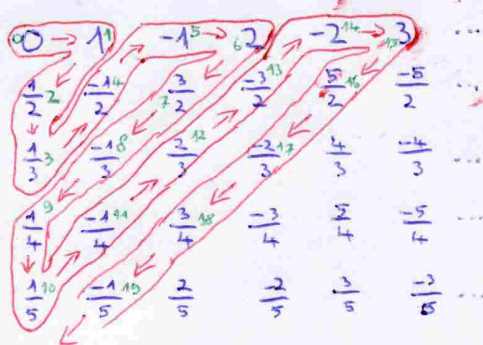 0 0 → 1 1 -1 5 → 6 2 -2 14 → 15 3 ...
1/2 2 -1/2 4 7 3/2 -3/2 13 5/2 16 -5/2 ...
1/3 3 -1/3 8 2/3 12 -2/3 17 4/3 -4/3 ...
9 1/4 -1/4 11 3/4 18 -3/4 5/4 -5/4 ...
1/5 10 -1/5 19 2/5 -2/5 3/5 -3/5 ...